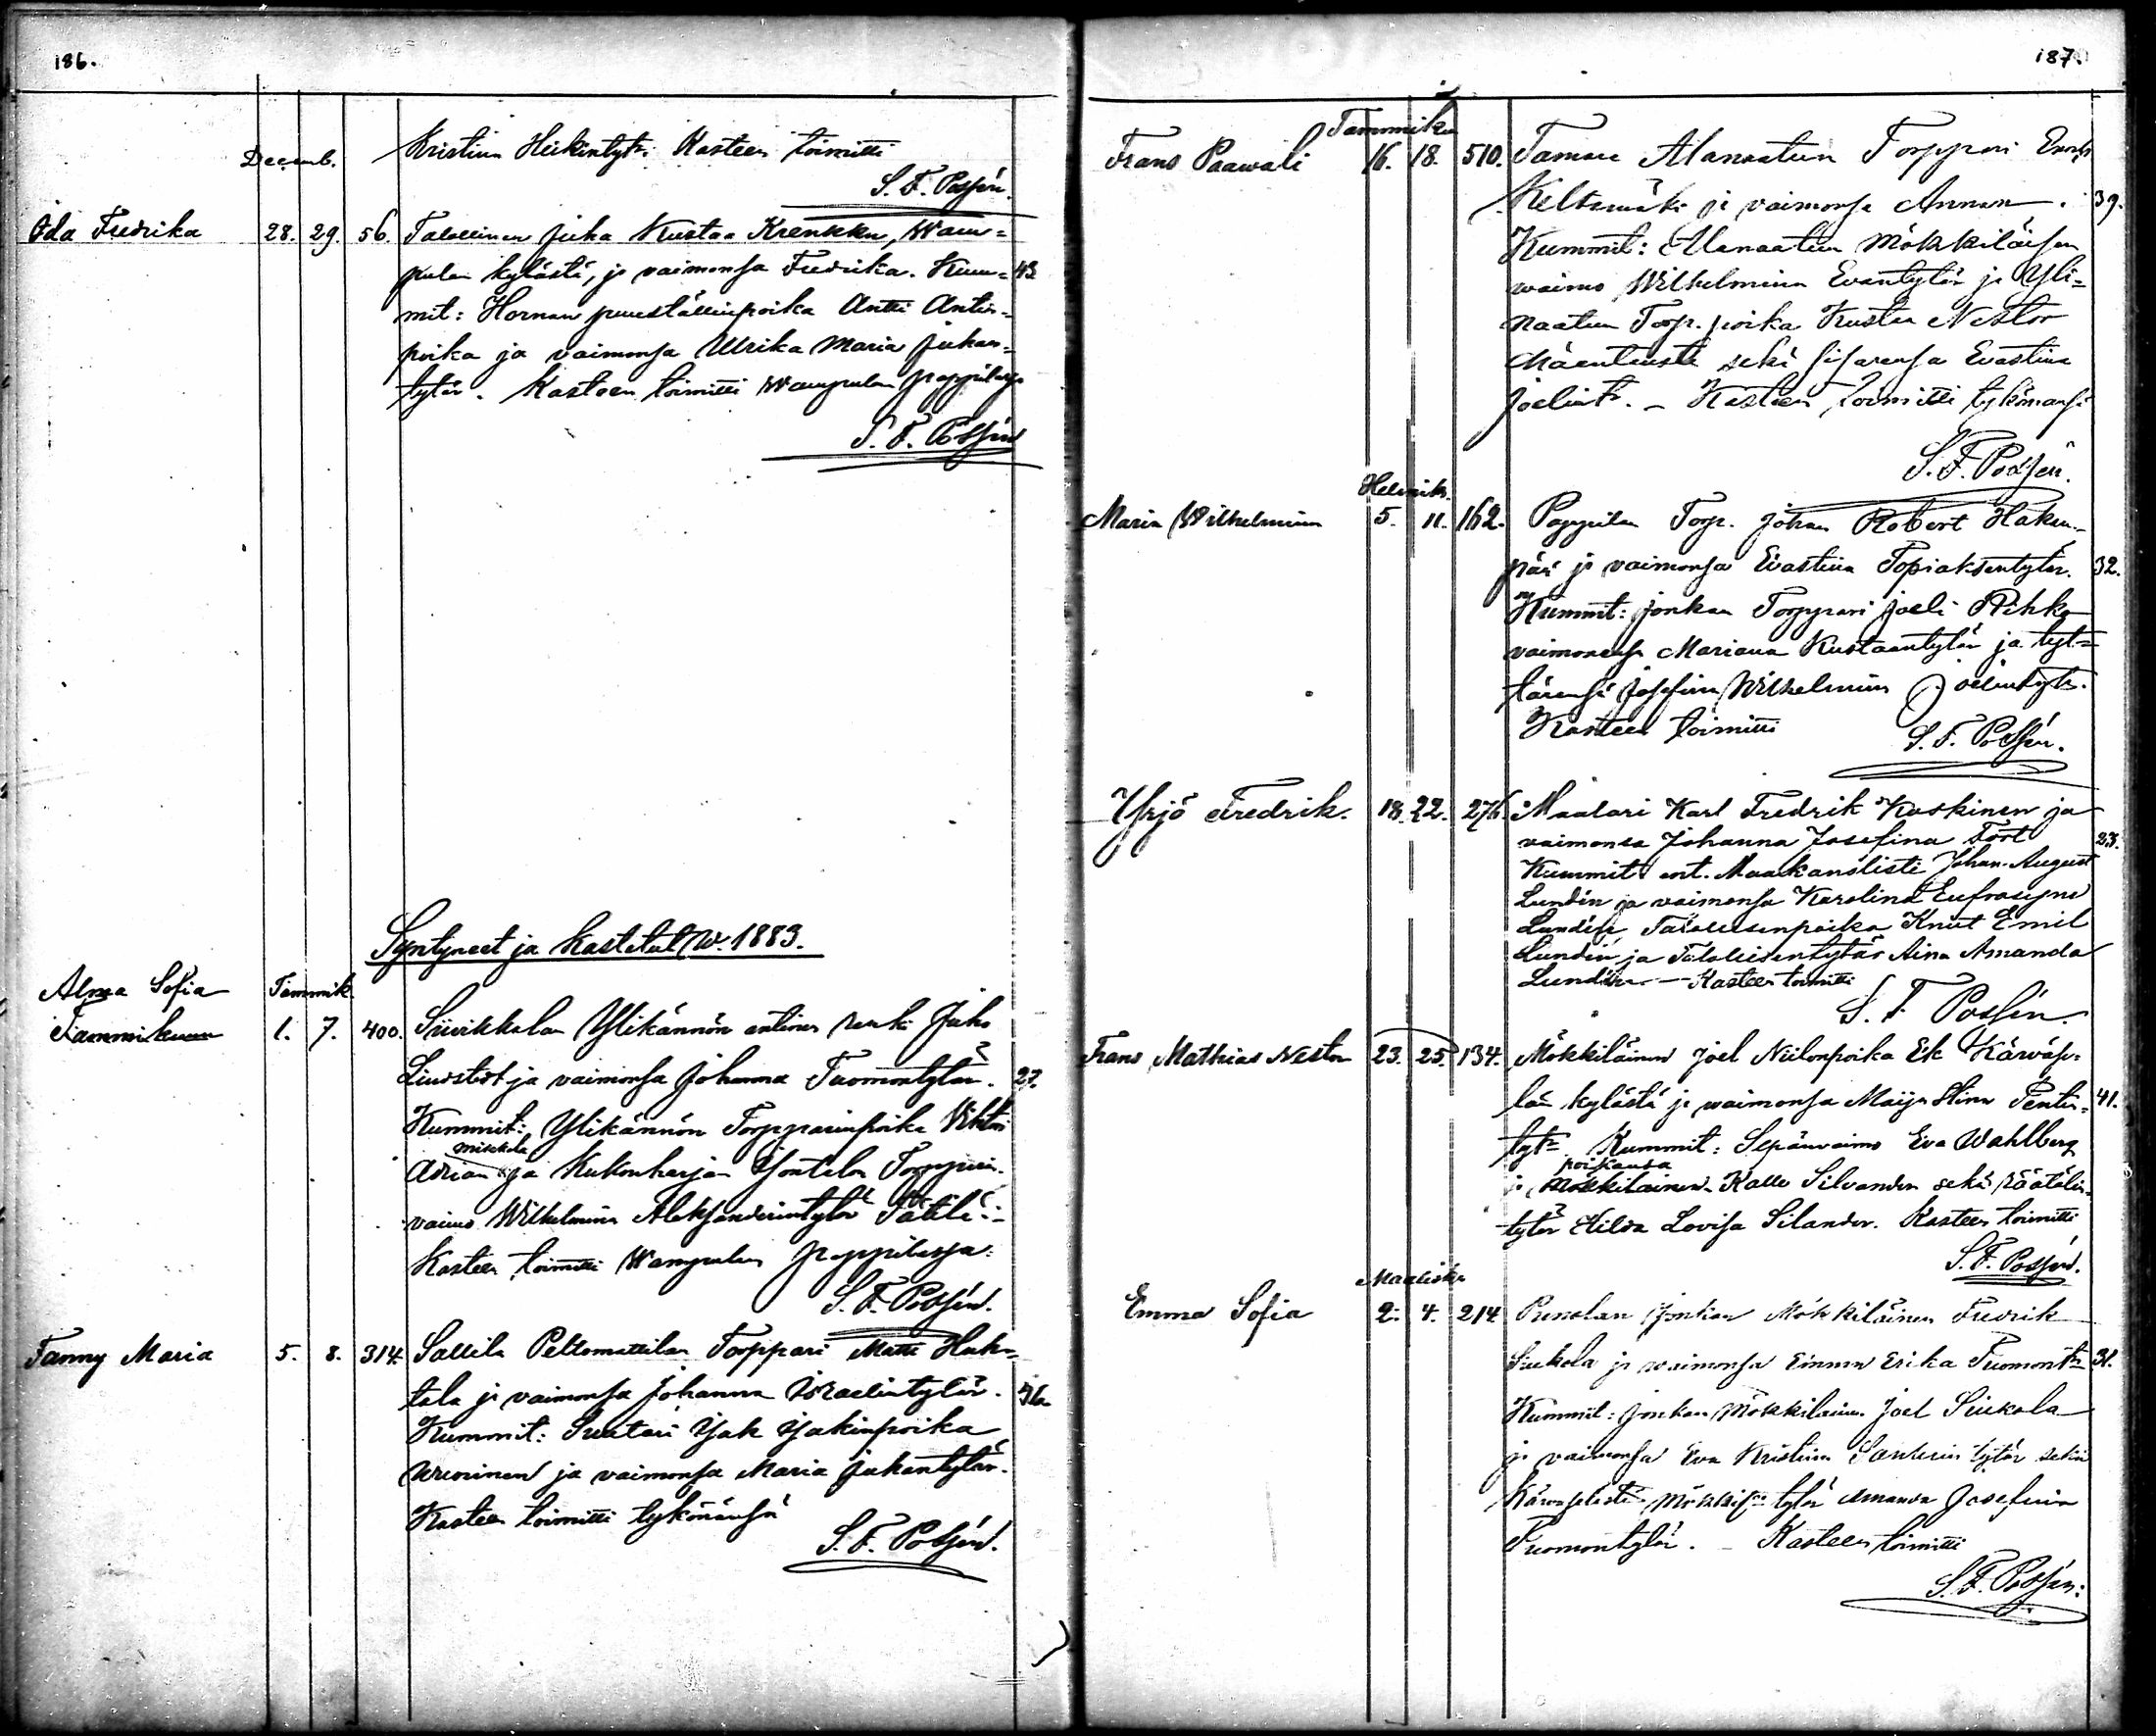 186.
Decemb.
Kristiina Heikintytr. Kasteen toimitti
S. F. Possén.
Ida Fredrika 28. 29. 56. Talollinen Juha Kustaa Krenkku, Wam=
pulan kylästä, ja vaimonsa Fredrika. Kum= 43
mit: Hornan puuställinpoika Antti Antin=
poika ja vaimonsa Ulrika Maria Juhan=
tytär. Kasteen toimitti Wampulan pappilassa
S. F. Possén
Syntyneet ja kastetut W. 1883.
Alma Sofia Tammik.
Tammikuun 1. 7. 400. Siivikkalan Ylikännön entinen renki Juho
Lindstedt ja vaimonsa Johanna Tuomontytär. 27.
Kummit: Ylikännön Torpparinpoika Viktor
Mikkola
Adrian ja Kukonharjan Torpparin
vaimo Wilhelmina Aleksanderintytär
Kasteen toimitti Wampulan pappilassa.
S. F. Possén.
Fanny Maria 5. 8. 314. Sallila Peltomattilan Torppari Matti Huh=
tala ja vaimonsa Johanna Israelintytär.
Kummit: Suutari Isak Isakinpoika
Wuorinen ja vaimonsa Maria Juhantytär.
Kasteen toimitti tykönänsä
S. F. Possén.
187.
Tammiku
Frans Paawali 16. 18. 510. Alanaatun Torppari
Keltamäki ja vaimonsa Annan. 39.
Kummit: Alanaatun Mökkiläisen
waimo Wilhelmina Evantytär ja Yli=
naatun Torp. poika Kustaa Nestor
Mäentausta sekä sisarensa Evastina
Joelint. – Kasteen toimitti tykönänsä
S. F. Possén.
Helmik.
Maria Wilhelmina 5. 11. 162. Pappilan Torp. Johan Robert Haken=
pää ja vaimonsa Evastina Topiaksentytär. 32.
Kummit: Jonkan Torppari Joeli Pihko
vaimonensa Mariana Kustaantytär ja tyt=
tärensä Josefina Wilhelmina Joelintytr.
Kasteen toimitti
S. F. Possén.
Yrjö Fredrik. 18. 22. 276 Maalari Karl Fredrik Koskinen ja
vaimonsa Johanna Josefina Fört 23.
Kummit: ent. Maakanslisti Johan August
Lundén ja vaimonsa Karolina Eufrosyne
Lundén Talollisenpoika Knut Emil
Lundén ja Talollisentytär Aina Amanda
Lundén. — Kasteen toimitti
S. F. Possén.
Frans Mathias Nestor 23. 25. 134. Mökkiläinen Joel Niilonpoika Ek Kärväse=
län kylästä ja waimonsa Maija Stina Pentin= 41.
tyt= Kummit: Sepänvaimo Eva Wahlberg
poikansa
ja Mökkiläinen Kalle Silvander sekä räätälin
tytär Hilda Lovisa Silander. Kasteen toimitti
S. F. Possén.
Maalisku
Emma Sofia 2. 4. 214 Punolan Jonkan Mökkiläinen Fredrik
Siukola ja waimonsa Emma Erika Tuomont= 31.
Kummit: Jonkan Mökkiläinen Joel Siukola
ja vaimonsa Eva Kristiina tytär sekä
tytär Amanda Josefiina
Tuomontytär. – Kasteen toimitti
S. F. Possén.